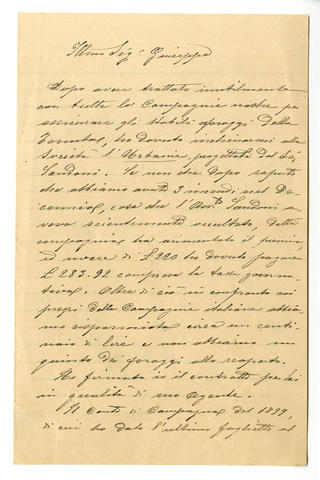 Illmo Sigr Giuseppe
Dopo avere trattato inutilmente
con tutte le Compagnie nostre per
assicurare gli stabili foraggi della
Tenuta, ho dovuto inchinarmi alla
Società l'Urbanie, progettata dal Sig
Landoni. Se non che dopo saputo
che abbiamo avuti 3 incendi nel De-
cennio, cosa che l'Avvto Landoni a-
veva scientemente occultato, detta
compagnia ha aumentato il premio,
ed invece di £ 220 ho dovuto pagare
£ 283.92 compresa la tassa governa-
tiva. Oltre di ciò in confronto coi
prezzi delle Compagnie italiane abbia-
mo risparmiato circa un centi-
naio di lire e non abbiamo un
quinto dei foraggi allo scoperto.
Ho firmato io il contratto per lei
in qualità di suo agente.
Il Conto di Campagna del 1899,
di cui ho dato l'ultimo foglietto al